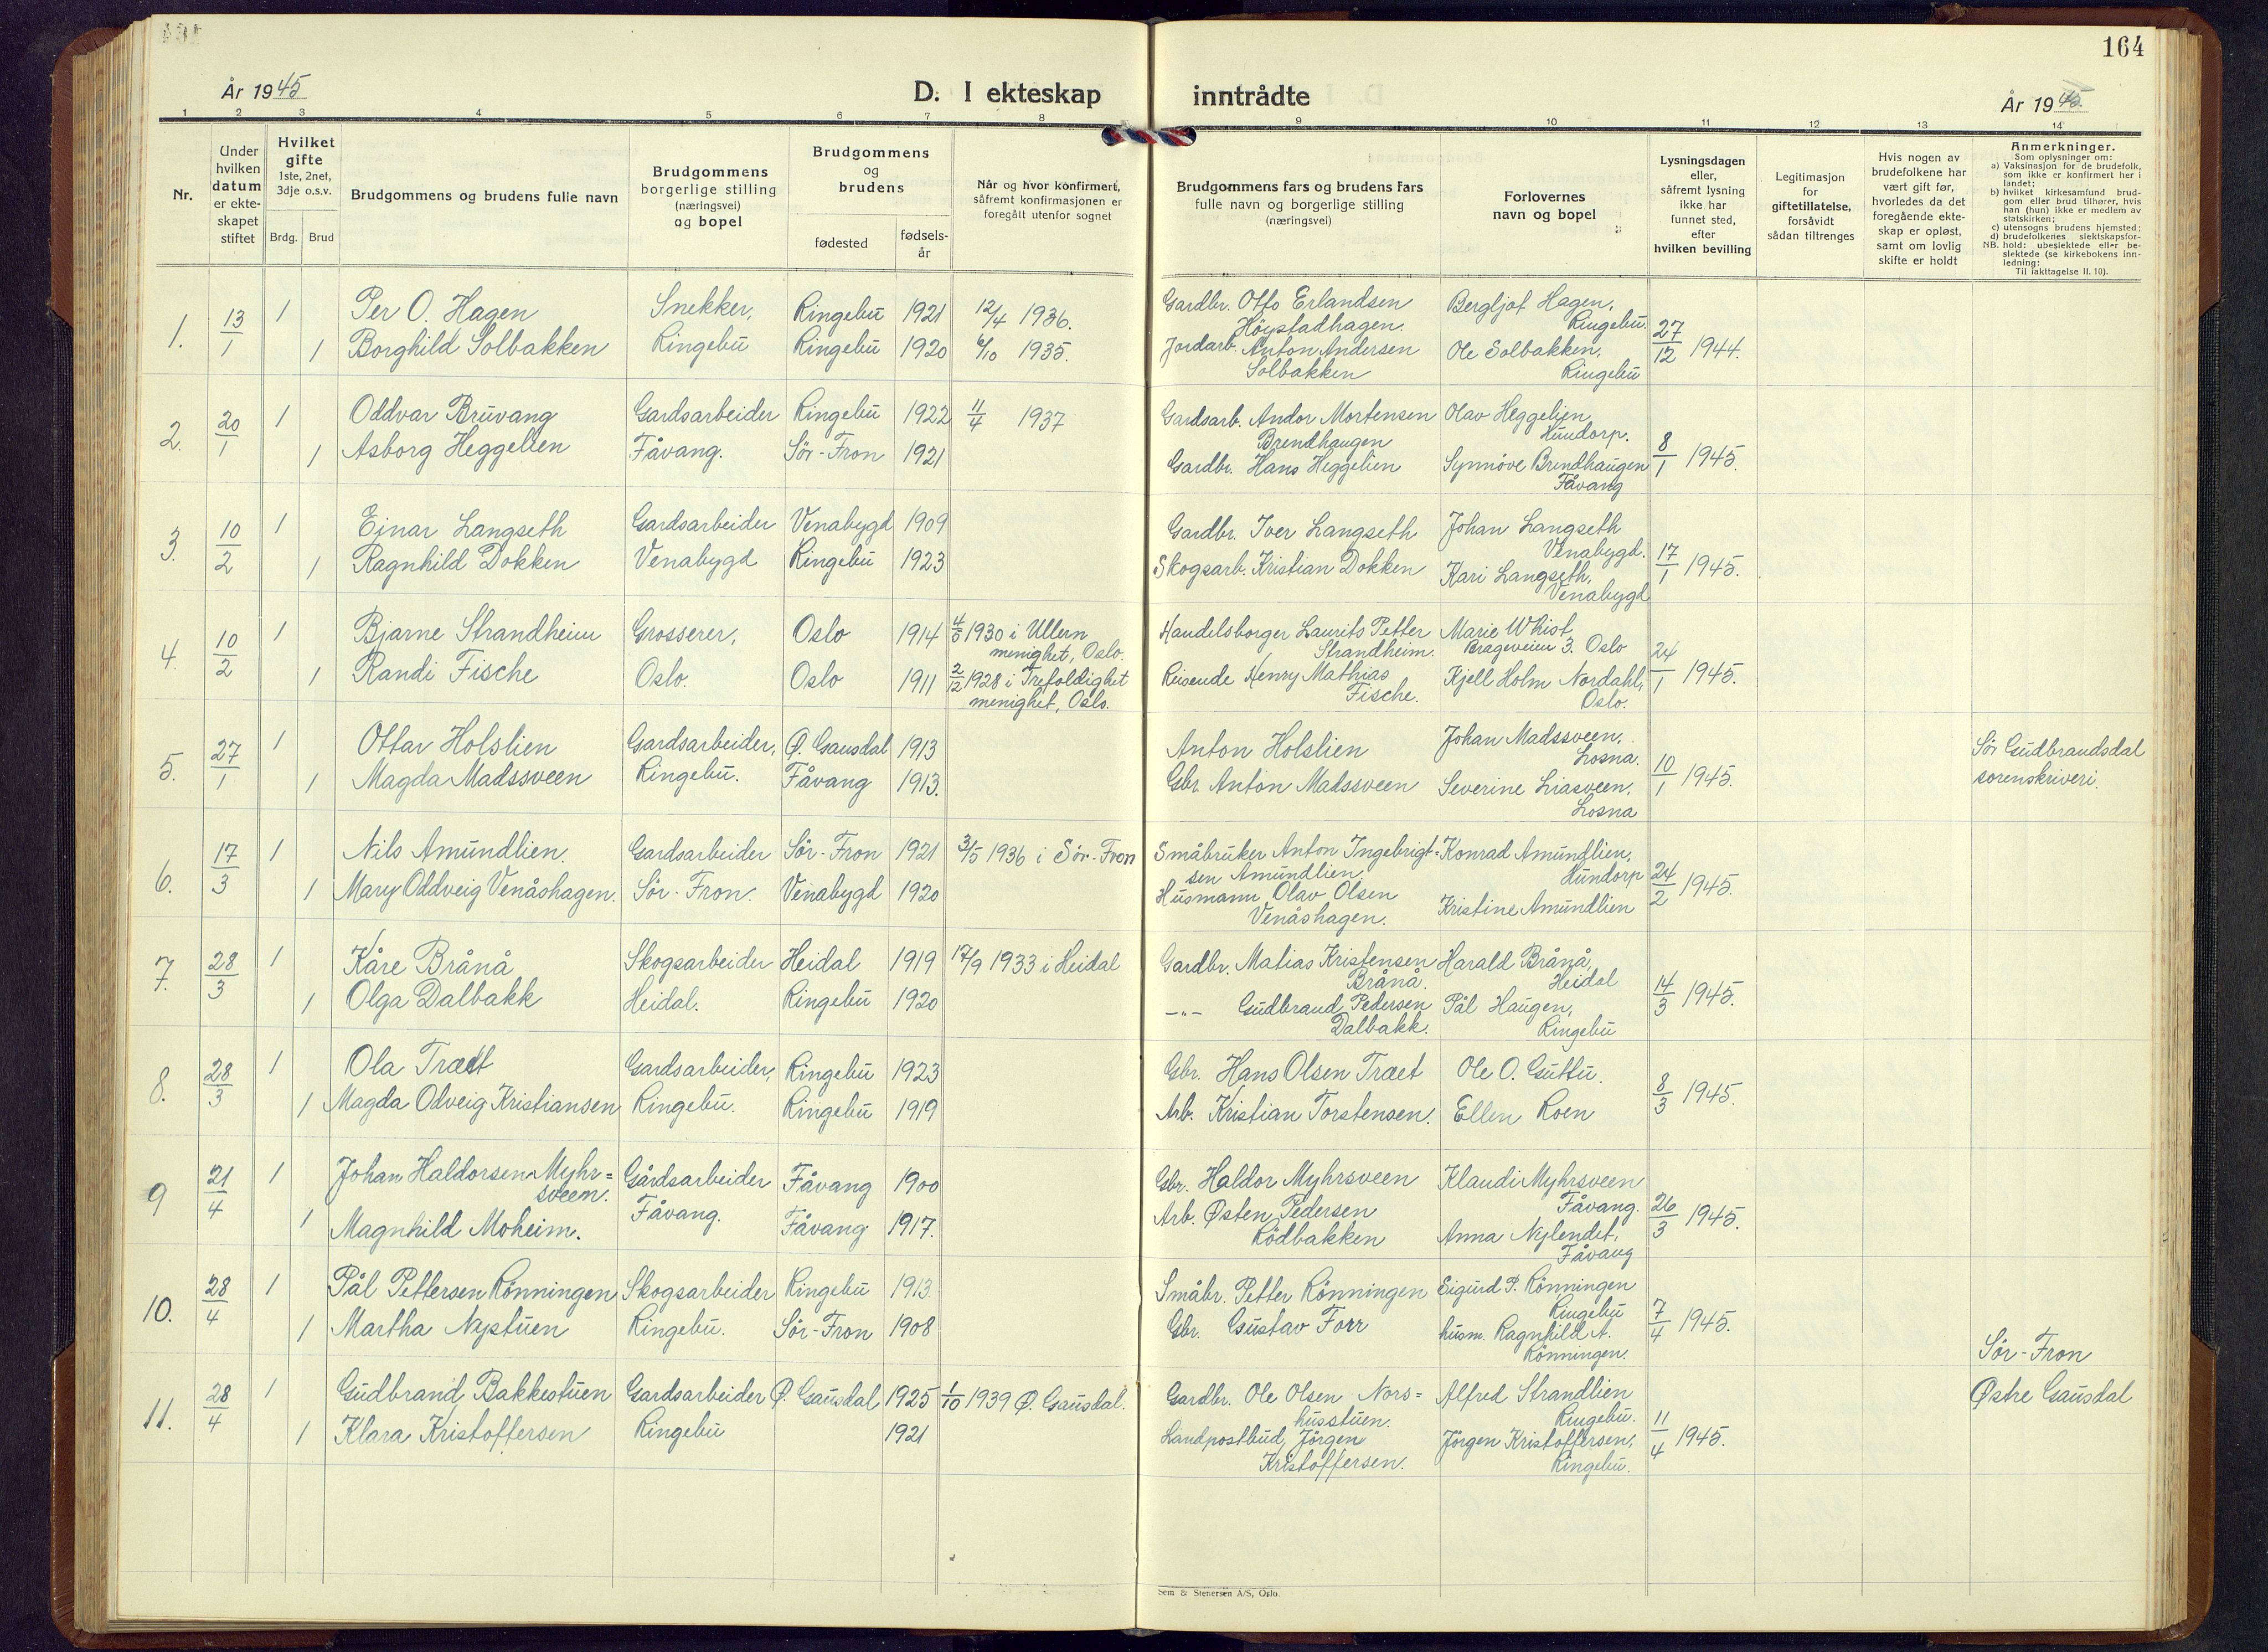 164
År 1945
D. I ekteskap inntrådte
År 1945.
1 2 3 4 5 6 7 8 9 10 11 12 13 14
Nr.
Under hvilken datum er ekteskapet stiftet
Hvilket gifte 1ste, 2net, 3dje o.s.v.
Brdg. Brud
Brudgommens og brudens fulle navn
Brudgommens borgerlige stilling (næringsvei) og bopel
Brudgommens og brudens
fødested
fødselsår
Når og hvor konfirmert, såfremt konfirmasjonen er foregått utenfor sognet
Brudgommens fars og brudens fars fulle navn og borgerlige stilling (næringsvei)
Forlovernes navn og bopel
Lysningsdagen eller, såfremt lysning ikke har funnet sted, efter hvilken bevilling
Legitimasjon for giftetillatelse, forsåvidt sådan tiltrenges
Hvis nogen av brudefolkene har vært gift før, hvorledes da det foregående ekteskap er opløst, samt om lovlig skifte er holdt
Anmerkninger.
Som oplysninger om:
a) Vaksinasjon for de brudefolk, som ikke er konfirmert her i landet;
b) hvilket kirkesamfund brudgom eller brud tilhører, hvis han (hun) ikke er medlem av statskirken;
c) utensogns brudens hjemsted;
d) brudefolkenes slektskapsforhold: ubeslektede eller beslektede (se kirkebokens innledning:
NB.
Til iakttagelse II. 10).
1. 13/1 1 Per O. Hagen Snekker, Ringebu 1921 12/4 1936. Gardbr. Otto Erlandsen Høystadhagen. Bergljot Hagen, Ringebu. 27/12 1944.
1 Borghild Solbakken Ringebu Ringebu 1920 6/10 1935. Jordarb. Anton Andersen Solbakken Ole Solbakken, Ringebu
2. 20/1 1 Oddvar Bruvang Gardsarbeider Ringebu 1922 11/4 1937 Gardsarb. Andor Mortensen Brendhaugen Olav Heggelien, Hundorp. 8/1 1945.
1 Asborg Heggelien Fåvang. Sör-Fron 1921 Gardbr. Hans Heggelien Synnöve Brendhaugen Fåvang
3. 10/2 1 Einar Langseth Gardsarbeider Venabygd 1909 Gardbr. Iver Langseth Johan Langseth Venabygd. 17/1 1945.
1 Ragnhild Dokken Venabygd Ringebu 1923 Skogsarb. Kristian Dokken Kari Langseth, Venabygd
4. 10/2 1 Bjarne Strandheim Grosserer, Oslo 1914 4/5 1930 i Ullern menighet, Oslo. Handelsborger Laurits Petter Strandheim. Marie Whist Brageveien 3. Oslo 24/1 1945.
1 Randi Fische Oslo. Oslo 1911 2/12 1928 i Trefoldighet menighet, Oslo. Reisende Henry Mathias Fische. Kjell Holm Nordahl, Oslo.
5. 27/1 1 Ottar Holslien Gardsarbeider, Ø. Gausdal 1913 Anton Holslien Johan Madssveen, Losna. 10/1 1945. Sör Gudbrandsdal sorenskriveri.
1 Magda Madssveen Ringebu. Fåvang 1913. Gbr. Anton Madssveen Severine Liasveen, Losna
6. 17/3 1 Nils Amundlien. Gardsarbeider Sör-Fron 1921 3/5 1936 i Sör-Fron Småbruker Anton Ingebrigtsen Amundlien, Konrad Amundlien, Hundorp 24/2 1945.
1 Mary Oddveig Venåshagen. Sör-Fron. Venabygd 1920 Husmann Olav Olsen Venåshagen. Kristine Amundlien
7. 28/3 1 Kåre Brånå Skogsarbeider Heidal 1919 17/9 1933 i Heidal Gardbr. Matias Kristensen Brånå. Harald Brånå, Heidal 14/3 1945.
1 Olga Dalbakk Heidal. Ringebu 1920 -"- Gudbrand Pedersen Dalbakk. Pål Haugen, Ringebu
8. 28/3 1 Ola Træet Gardsarbeider, Ringebu 1923 Gbr. Hans Olsen Træet Ole O. Guttu. 8/3 1945.
1 Magda Odveig Kristiansen Ringebu. Ringebu 1919 Arb. Kristian Torstensen. Ellen Roen
9 21/4 1 Johan Haldorsen Myhr=sveen. Gårdsarbeider Fåvang 1900 Gbr. Haldor Myhrsveen Klaudi Myhrsveen Fåvang. 26/3 1945.
1 Magnhild Moheim. Fåvang. Fåvang 1917. Arb. Østen Pedersen Rödbakken Anna Nylendet, Fåvang
10. 28/4 1 Pål Pettersen Rönningen Skogsarbeider Ringebu 1913. Småbr. Petter Rönningen Sigurd P. Rönningen Ringebu 7/4 1945.
1 Martha Nystuen Ringebu. Sör-Fron 1908 Gbr. Gustav Forr husm. Ragnhild A. Rönningen. Sör-Fron
11. 28/4 1 Gudbrand Bakkestuen Gardsarbeider Ø. Gausdal 1925 1/10 1939 Ø. Gausdal. Gardbr. Ole Olsen Nors=husstuen. Alfred Strandlien Ringebu. 11/4 1945. Østre Gausdal
1 Klara Kristoffersen Ringebu 1921 Landpostbud, Jörgen Kristoffersen. Jörgen Kristoffersen, Ringebu.
Sem & Stenersen A/S, Oslo.